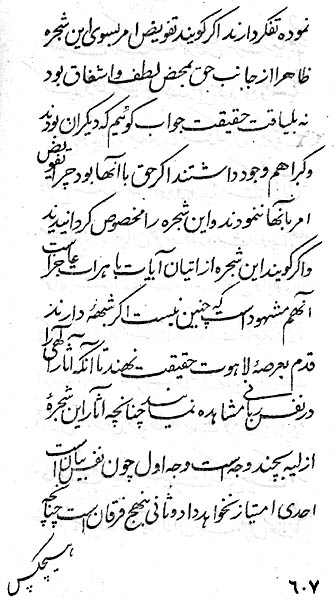 نموده تفکر دارند اکر کویند تفویض امر بسوی این شجره
ظاهرا از جانب حق بمحض لطف و اشفاق بود
نه بلیاقت حقیقت جواب کوئیم که دیکران بودند
و کبرا هم وجود داشتند اکر حق با آنها بود چرا تفویض
امر بآنها ننمودند و این شجره را مخصوص کردانیدند
و اکر کویند این شجره از اتیان آیات باهرات عاجز است
آنهم مشهود است که چنین نیست اکر شبههٔ دارند
قدم بعرصهٔ لاهوت حقیقت نهند تا آنکه آثار آلهی را
در نفس ربانی مشاهده نمایند چنانچه آثار این شجرهٔ
ازلیه بچند وجه است وجه اول چون نفس بیان است
احدی امتیاز نخواهد داد و ثانی بنهج فرقان است چنانچه
هیچکس
۶۰۷